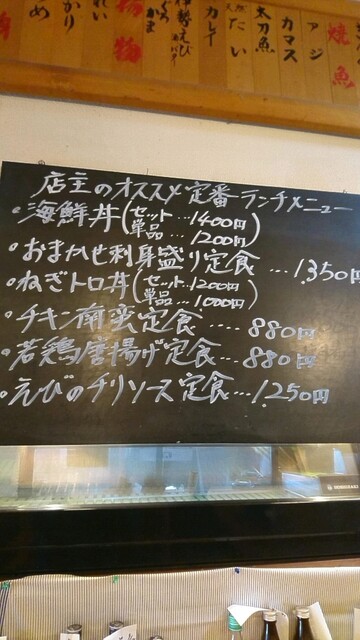 焼魚
アジ
カマス
太刀魚
たい
カレー
伊勢えび
かま
揚物
れい
かり
め
店主のオススメ定番ランチメニュー
・海鮮丼(セット…1400円
単品…1200円)
・おまかせ刺身盛り定食…1.350円
・ねぎトロ丼(セット…1200円
単品…1000円)
・チキン南蛮定食…880円
・若鶏唐揚げ定食…880円
・えびのチリソース定食…1.250円